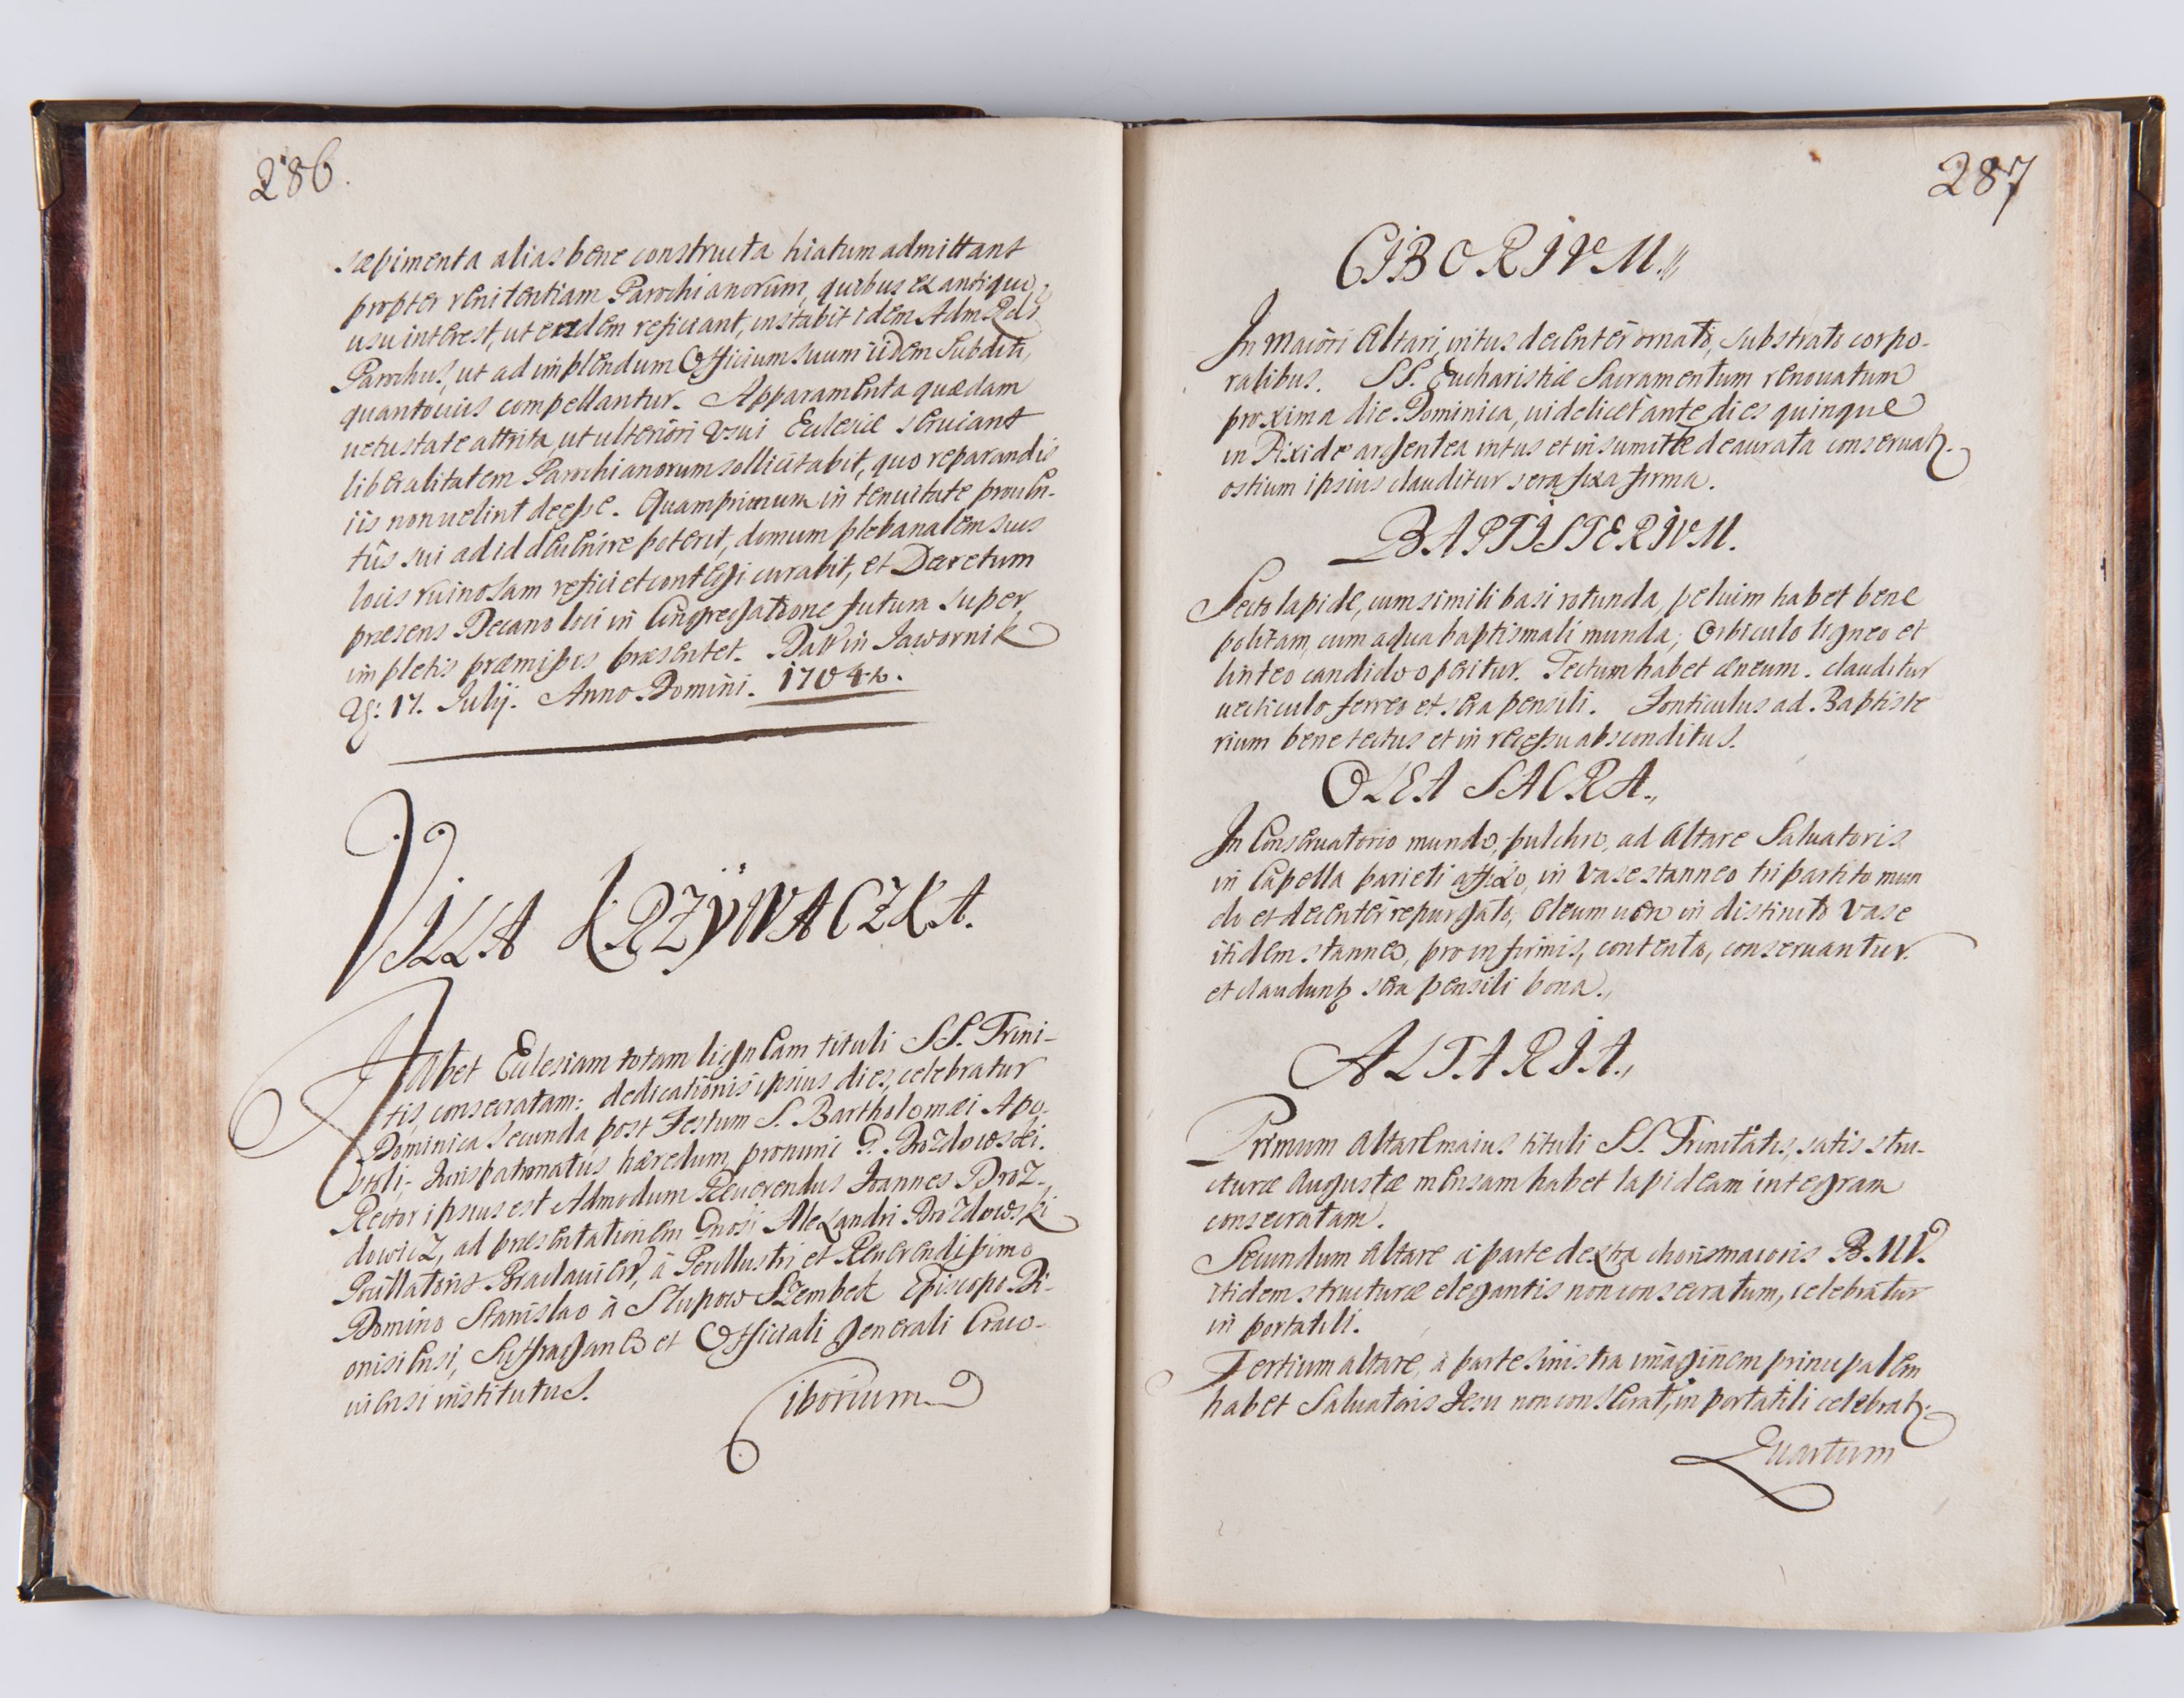 286.
sæpimenta alias bene constructa hiatum admittant
propter renitentiam Parochianorum, quibus ex antiquo
usu interest, ut eadem reficiant, instabit idem Adm Rdus
Parochus, ut ad implendum Officium suum iidem Subditi,
quantocius compellantur. Apparamenta quædam
uetustate attrita, ut ulteriori Vsui Eclesiæ seruiant
liberalitatem Parochianorum sollicitabit, quo reparandis
iis non uelint deesse. Quamprimum in tenuitate prouen-
tûs sui ad id deuenire poterit, domum plebanalem suis
locis ruinosam refici et contegi curabit, et Decretum
præsens Decano loci in Congregatione futura super
impletis præmissis præsentet. Datt in Jawornik
17. Julij. Anno Domini. 1704to.
VILLA KRZŸWACZKA.
Habet Eclesiam totam ligneam tituli SS. Trini-
tis, consecratam: dedicationis ipsius dies, celebratur
Dominica secunda post Festum S. Bartholomæi Apo-
stoli, Jurispatronatus hæredum pronunc G. Drozdowski.
Rector ipsius est Admodum Reuerendus Joannes Droz-
dowicz, ad præsentationem Gnosi Alexandri Drozdowski
Pocillatoris Braclauien, à Perillustri et Reuerendissimo
Domino Stanislao à Slupow Szembek Episcopo Di-
onisiensi, Suffraganeo et Officiali Generali Craco-
uiensi institutus.
Ciborium
287
CIBORIVM.
In maiori Altari, intus decenter ornato, substrato corpo-
ralibus. SS. Eucharistiæ Sacramentum renouatum
proxima die Dominica, uidelicet ante dies quinque
in Pixide argentea intus et in sumitte deaurata conseruatr.
ostium ipsius clauditur sera fixa firma.
BAPTISTERIVM.
Secto lapide, cum simili basi rotunda, peluim habet bene
politam, cum aqua baptismali munda, Orbiculo ligneo et
linteo candido operitur. Tectum habet æneum. clauditur
uecticulo ferreo et sera pensili. Fonticulus ad Baptiste
rium bene tectus et in recessu absconditus.
OLEA SACRA.,
In Conseruatorio mundo, pulchro, ad Altare Saluatoris
in Capella parieti affixo, in Vase stanneo tripartito mun
do et decenter repurgato, Oleum uero in distincto Vase
itidem stanneo, pro infirmis, contenta, conseruantur.
et claudunt sera pensili bona.,
ALTARIA.,
Primum Altare maius tituli SS. Trinitatis, satis stru-
cturæ Augustæ mensam habet lapideam integram
consecratam.
Secundum Altare à parte dextra chori maioris B.M.V.
itidem structuræ elegantis non consecratum, celebratur
in portatili.
Tertium altare, à parte sinistra imaginem principalem
habet Saluatoris Jesu non consecrat, in portatili celebratr.
Quartum